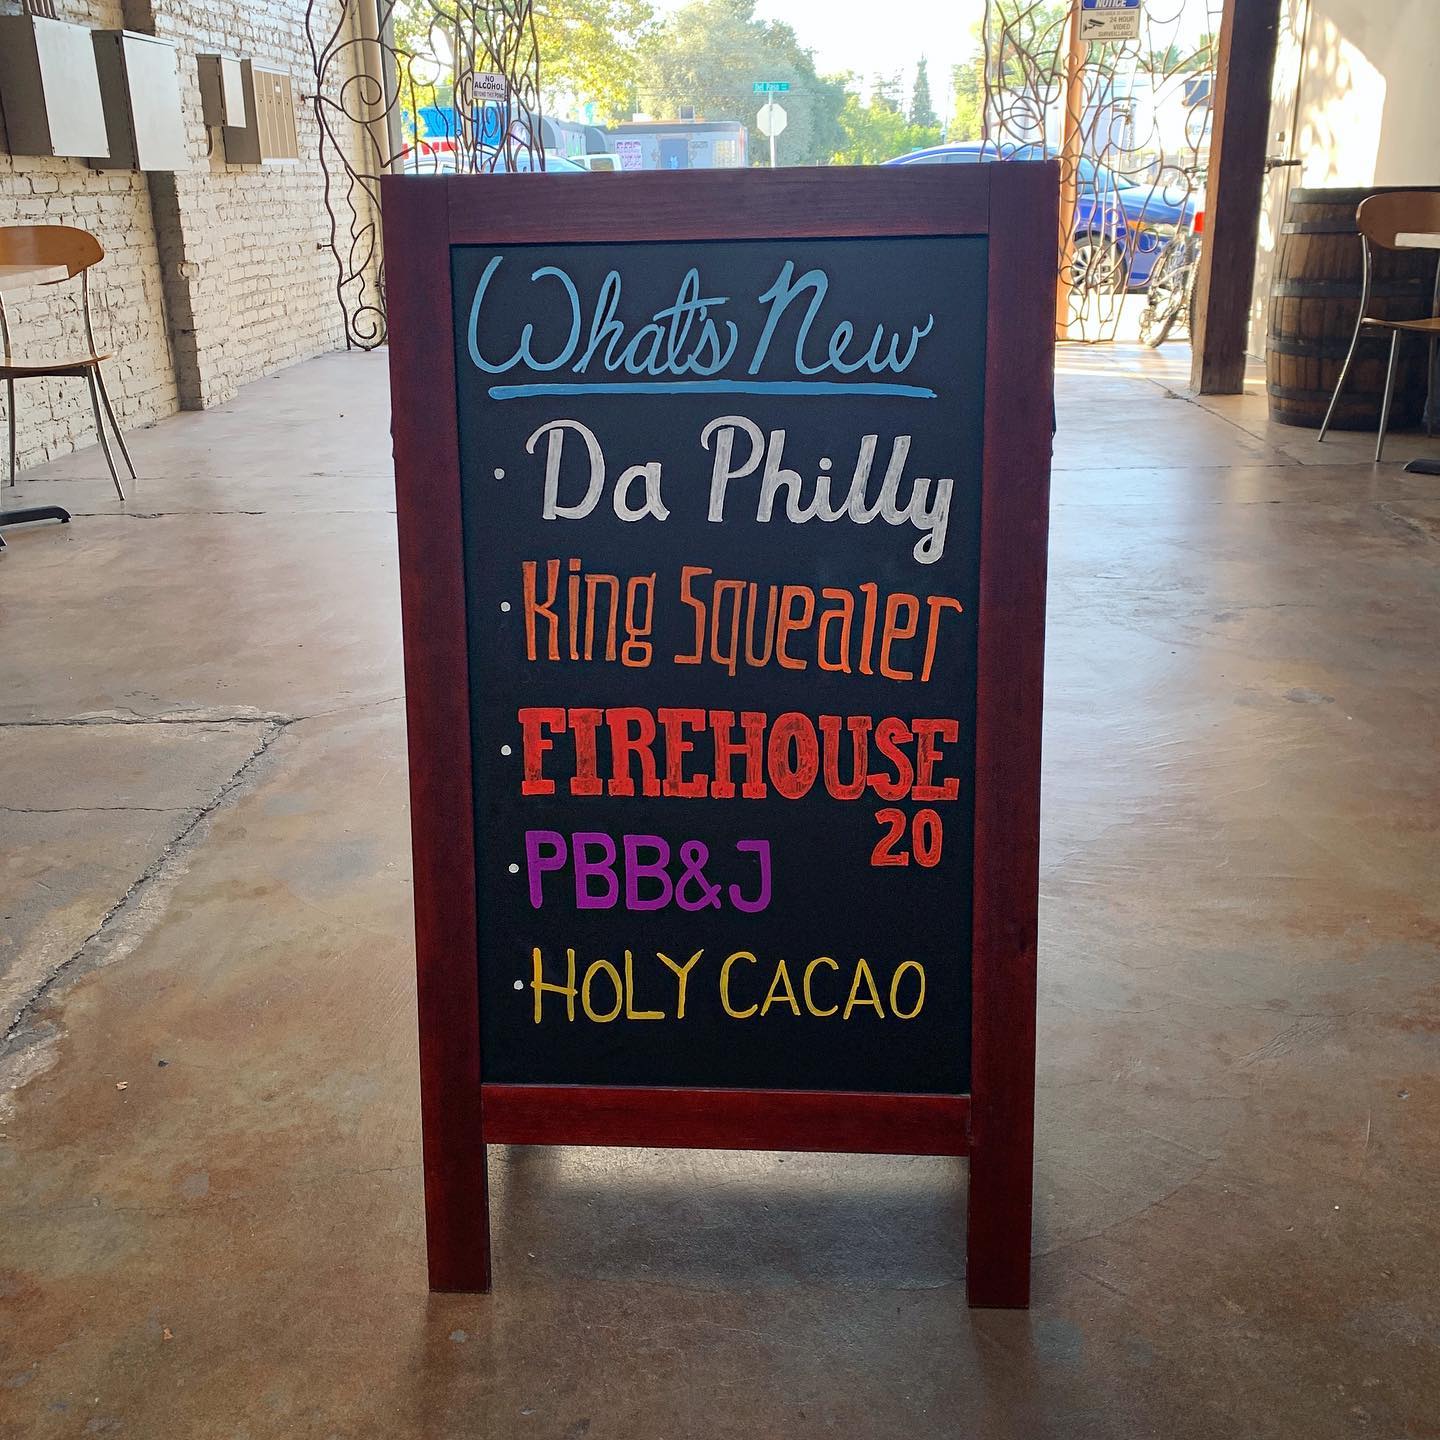 NOTICE
24 HOUR
VIDEO
SURVEILLANCE
NO
ALCOHOL
BEYOND THIS POINT
Del Paso
What's New
• Da Philly
• King Squealer
• FIREHOUSE
20
• PBB&J
• HOLY CACAO